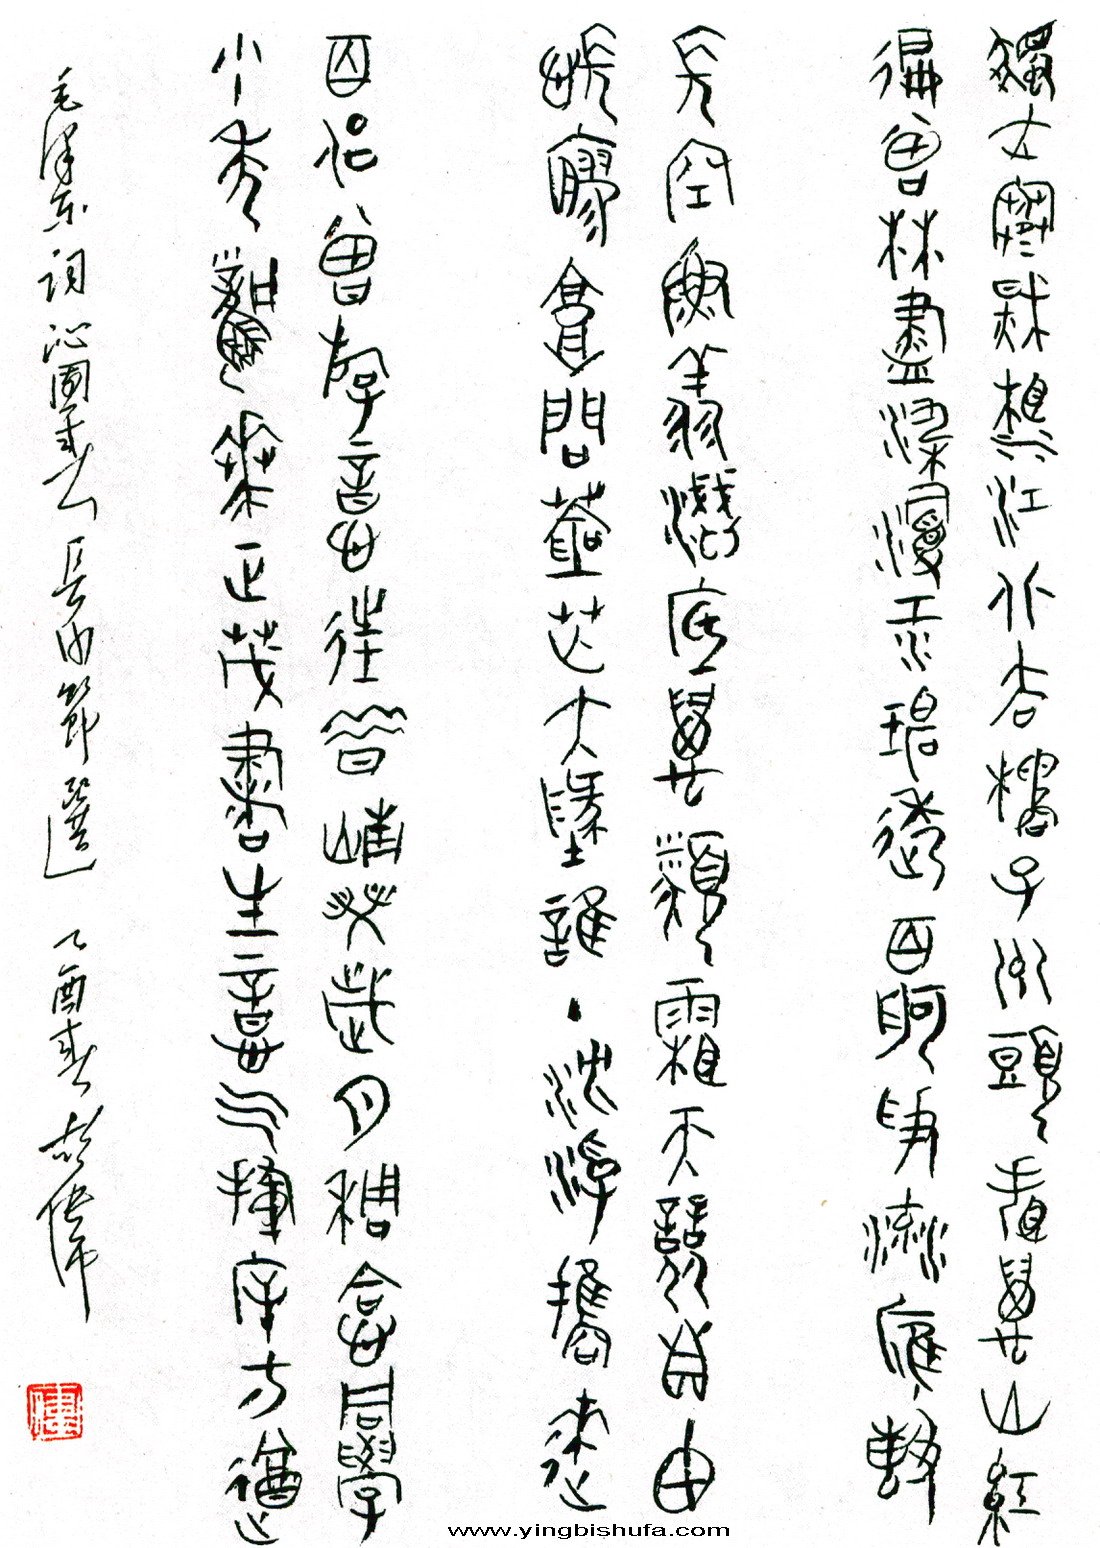 獨立寒秋湘江北去橘子州頭看萬山紅
徧曾林盡染漫江碧透百舸爭流鷹擊
長空魚翔淺底萬類霜天競自由
悵寥廓問蒼茫大地誰主沈浮攜來
百侶曾斿意往昔崢嶸歲月稠恰同學
少年風華正茂書生意气揮斥方遒
毛澤东词沁園春長沙節選 乙酉春
www.yingbishufa.com